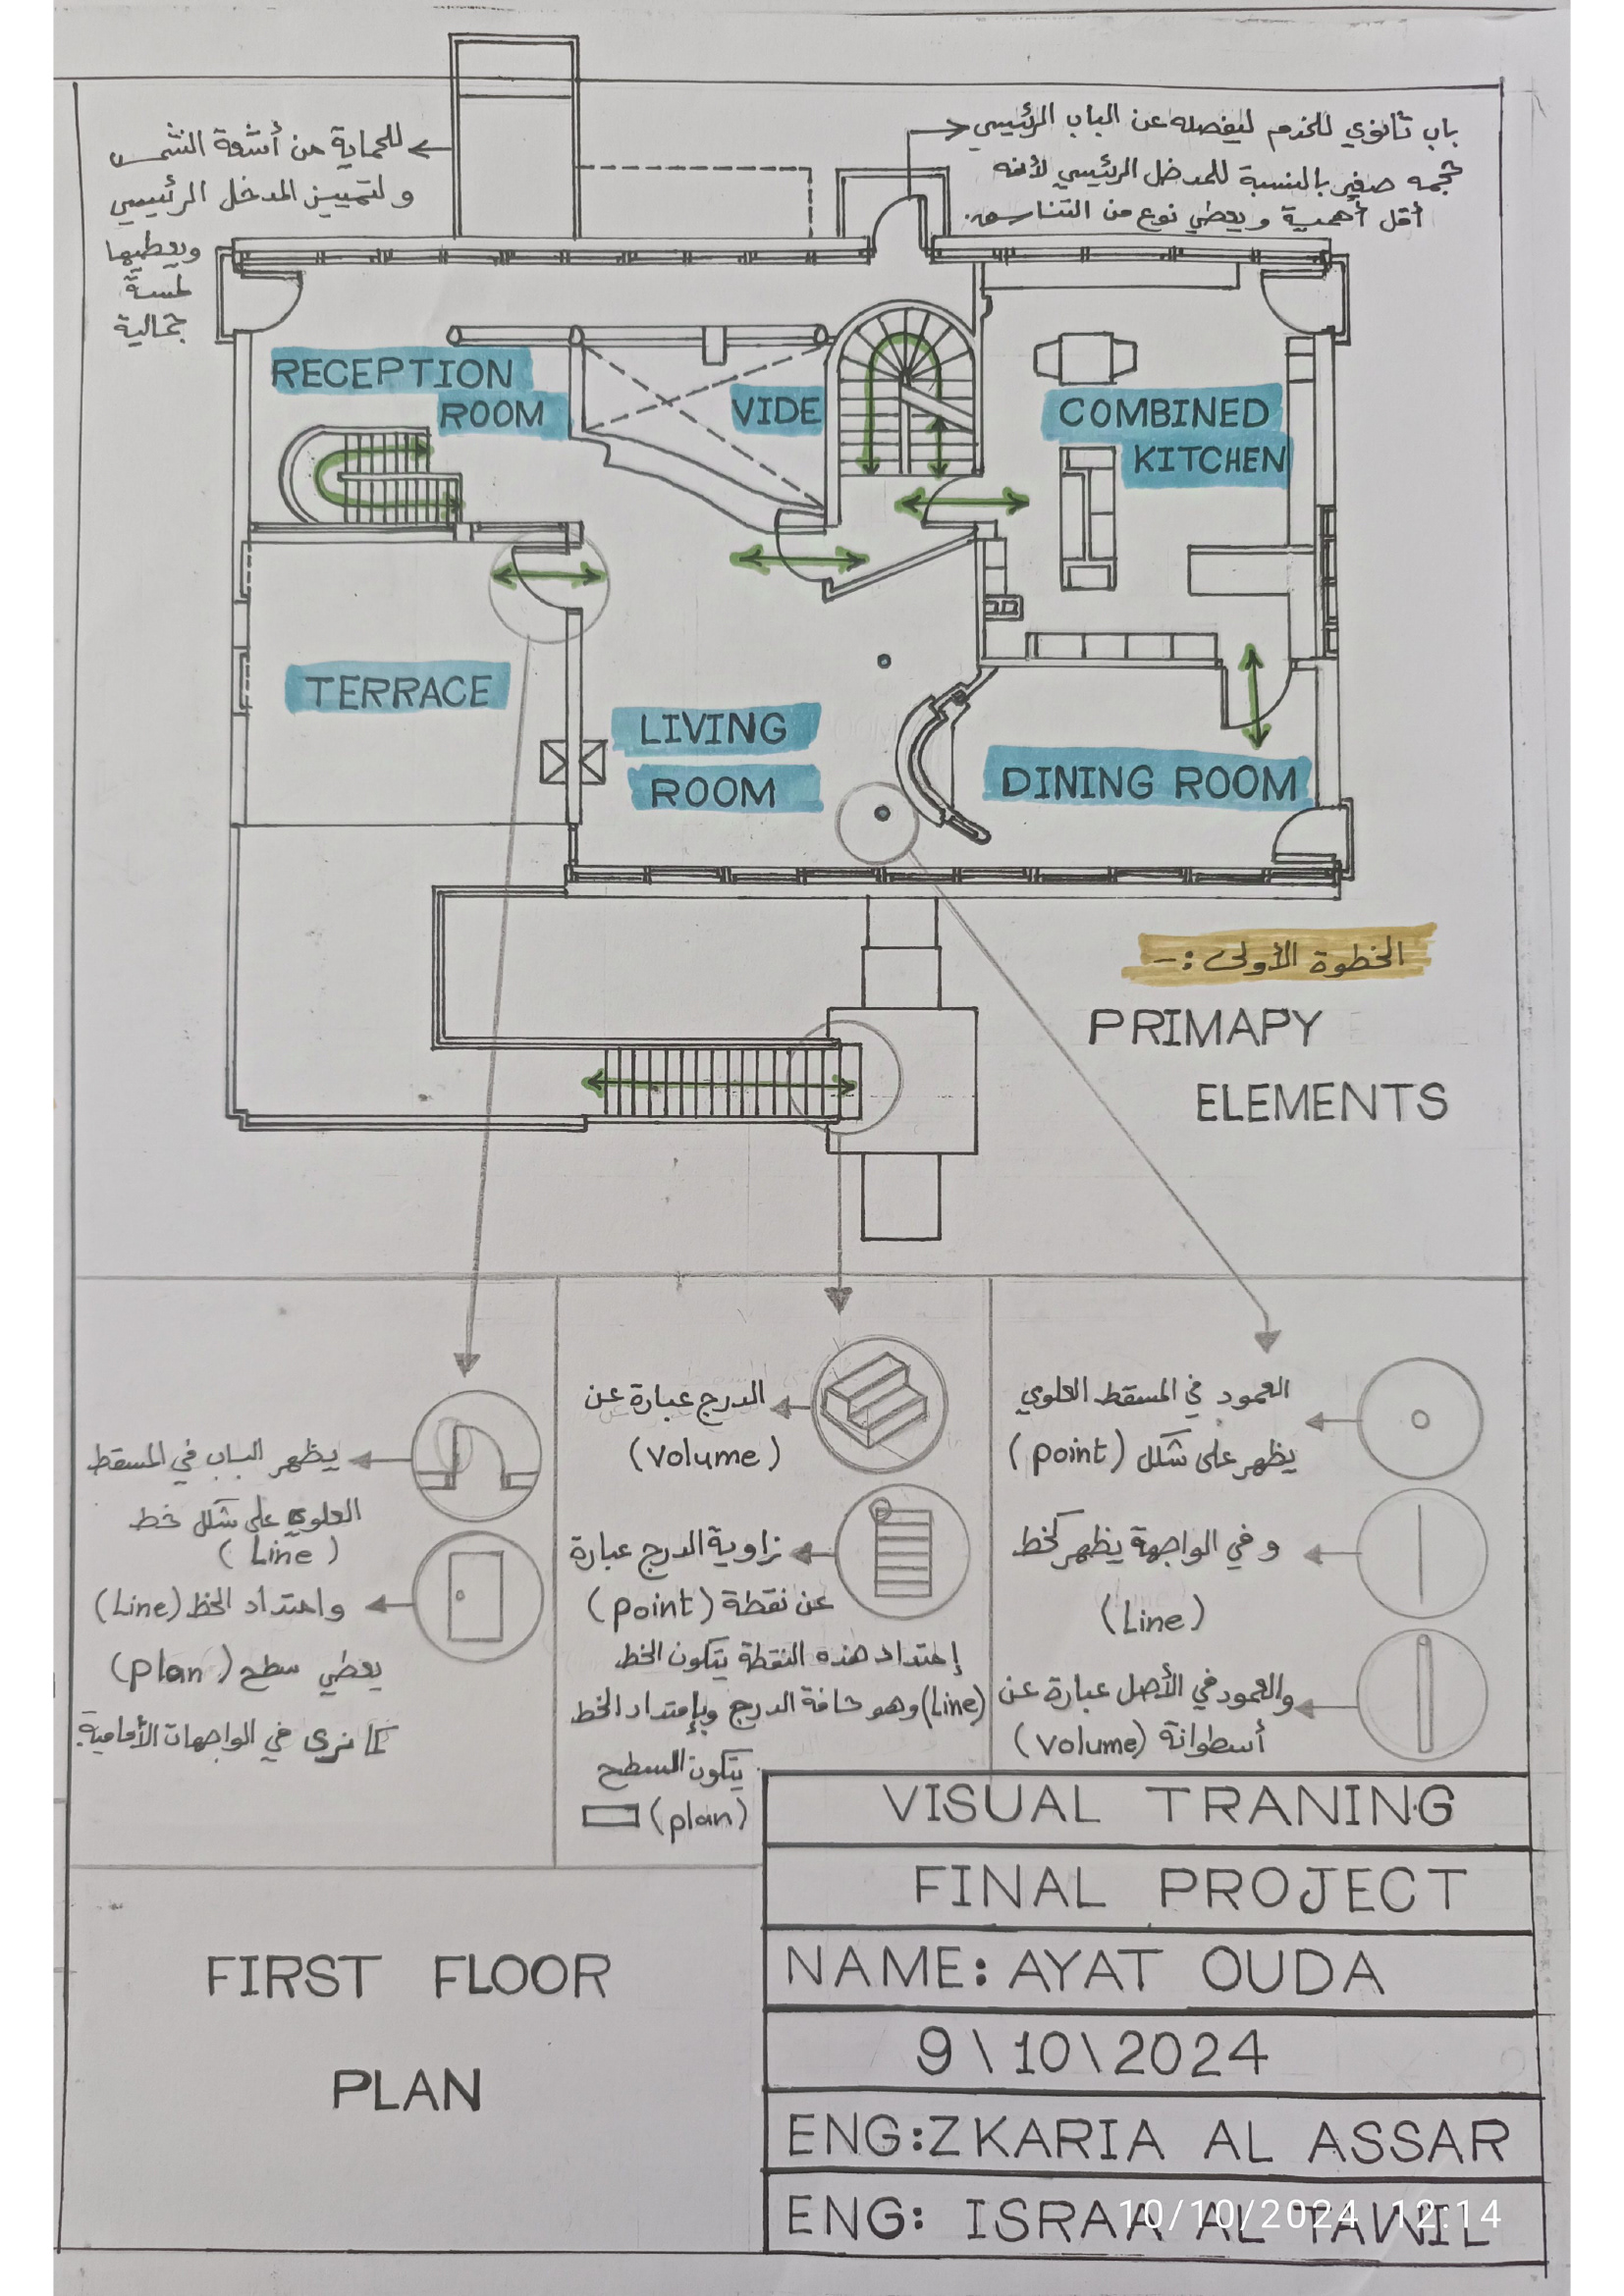 للحماية من أشعة الشمس
ولتمييز المدخل الرئيسي
ويعطيها
لمسة
جمالية
باب ثانوي للخدم ليفصله عن الباب الرئيسي
حجمه صغير بالنسبة للمدخل الرئيسي لأنه
أقل أهمية ويعطي نوع من التناسق.
RECEPTION
ROOM
VIDE
COMBINED
KITCHEN
TERRACE
LIVING
ROOM
DINING ROOM
الخطوة الأولى :-
PRIMAPY
ELEMENTS
العمود في المسقط العلوي
يظهر على شكل (point)
و في الواجهة يظهر كخط
(Line)
والعمود في الأصل عبارة عن
أسطوانة (volume)
الدرج عبارة عن
(volume)
زاوية الدرج عبارة
عن نقطة (point)
إمتداد هذه النقطة يتكون الخط
(Line) وهو حافة الدرج وبإمتداد الخط
يتكون السطح
(plan)
يظهر الباب في المسقط
العلوي على شكل خط
(Line)
وامتداد الخط (Line)
يعطي سطح (plan)
كما نرى في الواجهات الأمامية.
FIRST FLOOR
PLAN
VISUAL TRANING
FINAL PROJECT
NAME: AYAT OUDA
9\10\2024
ENG:ZKARIA AL ASSAR
ENG: ISRAA AL TAWIL
10/10/2024 12:14